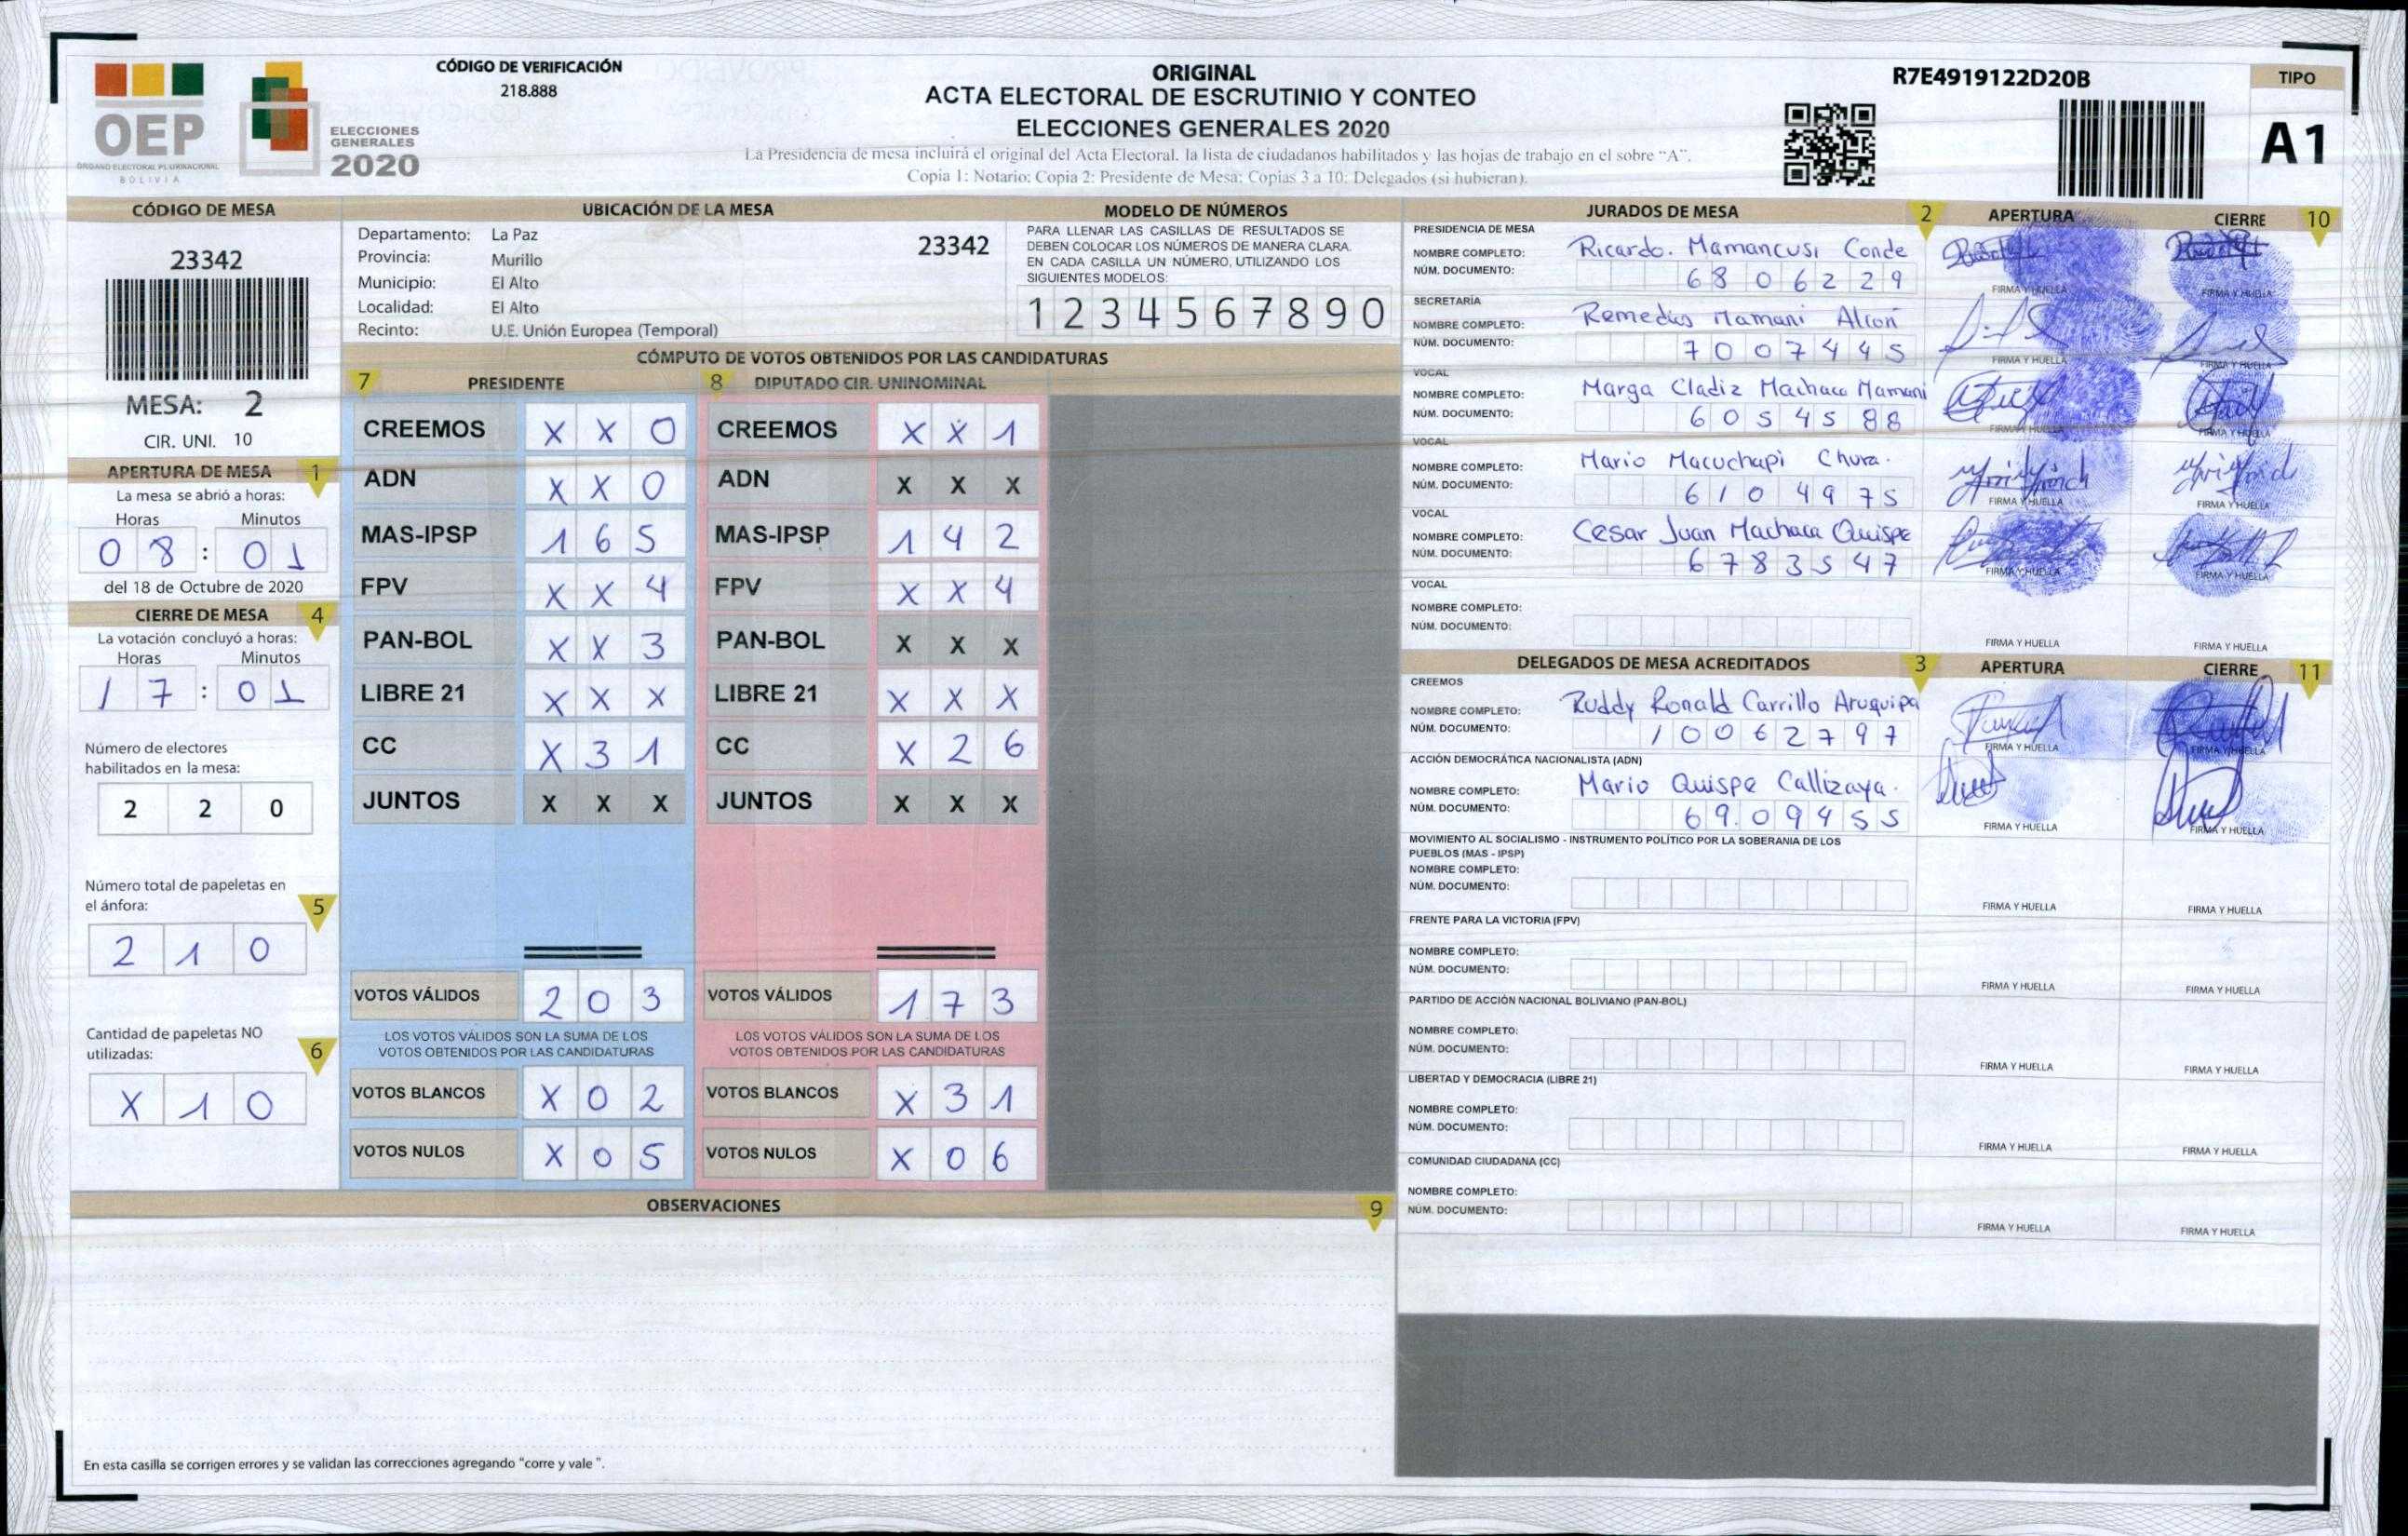 OEP
ÓRGANO ELECTORAL PLURINACIONAL
BOLIVIA
ELECCIONES
GENERALES
2020
CÓDIGO DE VERIFICACIÓN
218.888
ORIGINAL
ACTA ELECTORAL DE ESCRUTINIO Y CONTEO
ELECCIONES GENERALES 2020
La Presidencia de mesa incluirá el original del Acta Electoral, la lista de ciudadanos habilitados y las hojas de trabajo en el sobre "A".
Copia 1: Notario; Copia 2: Presidente de Mesa; Copias 3 a 10: Delegados (si hubieran).
R7E4919122D20B
TIPO
A1
CÓDIGO DE MESA
23342
MESA: 2
CIR. UNI. 10
APERTURA DE MESA 1
La mesa se abrió a horas:
Horas Minutos
08 : 01
del 18 de Octubre de 2020
CIERRE DE MESA 4
La votación concluyó a horas:
Horas Minutos
17 : 01
Número de electores
habilitados en la mesa:
2 2 0
Número total de papeletas en
el ánfora: 5
2 1 0
Cantidad de papeletas NO
utilizadas: 6
X 1 0
UBICACIÓN DE LA MESA
Departamento: La Paz 23342
Provincia: Murillo
Municipio: El Alto
Localidad: El Alto
Recinto: U.E. Unión Europea (Temporal)
MODELO DE NÚMEROS
PARA LLENAR LAS CASILLAS DE RESULTADOS SE
DEBEN COLOCAR LOS NÚMEROS DE MANERA CLARA.
EN CADA CASILLA UN NÚMERO, UTILIZANDO LOS
SIGUIENTES MODELOS:
1 2 3 4 5 6 7 8 9 0
CÓMPUTO DE VOTOS OBTENIDOS POR LAS CANDIDATURAS
7 PRESIDENTE 8 DIPUTADO CIR. UNINOMINAL
CREEMOS X X 0 CREEMOS X X 1
ADN X X 0 ADN X X X
MAS-IPSP 1 6 5 MAS-IPSP 1 4 2
FPV X X 4 FPV X X 4
PAN-BOL X X 3 PAN-BOL X X X
LIBRE 21 X X X LIBRE 21 X X X
CC X 3 1 CC X 2 6
JUNTOS X X X JUNTOS X X X
VOTOS VÁLIDOS 2 0 3 VOTOS VÁLIDOS 1 7 3
LOS VOTOS VÁLIDOS SON LA SUMA DE LOS LOS VOTOS VÁLIDOS SON LA SUMA DE LOS
VOTOS OBTENIDOS POR LAS CANDIDATURAS VOTOS OBTENIDOS POR LAS CANDIDATURAS
VOTOS BLANCOS X 0 2 VOTOS BLANCOS X 3 1
VOTOS NULOS X 0 5 VOTOS NULOS X 0 6
OBSERVACIONES 9
En esta casilla se corrigen errores y se validan las correcciones agregando "corre y vale ".
JURADOS DE MESA 2 APERTURA CIERRE 10
PRESIDENCIA DE MESA
NOMBRE COMPLETO: Ricardo. Mamancusi Conde
NÚM. DOCUMENTO: 6806229
FIRMA Y HUELLA FIRMA Y HUELLA
SECRETARÍA
NOMBRE COMPLETO: Remedios Mamani Alcon
NÚM. DOCUMENTO: 7007445
FIRMA Y HUELLA FIRMA Y HUELLA
VOCAL
NOMBRE COMPLETO: Marga Cladiz Machaca Mamani
NÚM. DOCUMENTO: 6054588
FIRMA Y HUELLA FIRMA Y HUELLA
VOCAL
NOMBRE COMPLETO: Mario Macuchapi Chura.
NÚM. DOCUMENTO: 6104975
FIRMA Y HUELLA FIRMA Y HUELLA
VOCAL
NOMBRE COMPLETO: Cesar Juan Machaca Quispe
NÚM. DOCUMENTO: 6783547
FIRMA Y HUELLA FIRMA Y HUELLA
VOCAL
NOMBRE COMPLETO:
NÚM. DOCUMENTO:
FIRMA Y HUELLA FIRMA Y HUELLA
DELEGADOS DE MESA ACREDITADOS 3 APERTURA CIERRE 11
CREEMOS
NOMBRE COMPLETO: Ruddy Ronald Carrillo Aruquipa
NÚM. DOCUMENTO: 10062797
FIRMA Y HUELLA FIRMA Y HUELLA
ACCIÓN DEMOCRÁTICA NACIONALISTA (ADN)
NOMBRE COMPLETO: Mario Quispe Callizaya.
NÚM. DOCUMENTO: 69.09455
FIRMA Y HUELLA FIRMA Y HUELLA
MOVIMIENTO AL SOCIALISMO - INSTRUMENTO POLÍTICO POR LA SOBERANIA DE LOS
PUEBLOS (MAS - IPSP)
NOMBRE COMPLETO:
NÚM. DOCUMENTO:
FIRMA Y HUELLA FIRMA Y HUELLA
FRENTE PARA LA VICTORIA (FPV)
NOMBRE COMPLETO:
NÚM. DOCUMENTO:
FIRMA Y HUELLA FIRMA Y HUELLA
PARTIDO DE ACCIÓN NACIONAL BOLIVIANO (PAN-BOL)
NOMBRE COMPLETO:
NÚM. DOCUMENTO:
FIRMA Y HUELLA FIRMA Y HUELLA
LIBERTAD Y DEMOCRACIA (LIBRE 21)
NOMBRE COMPLETO:
NÚM. DOCUMENTO:
FIRMA Y HUELLA FIRMA Y HUELLA
COMUNIDAD CIUDADANA (CC)
NOMBRE COMPLETO:
NÚM. DOCUMENTO:
FIRMA Y HUELLA FIRMA Y HUELLA